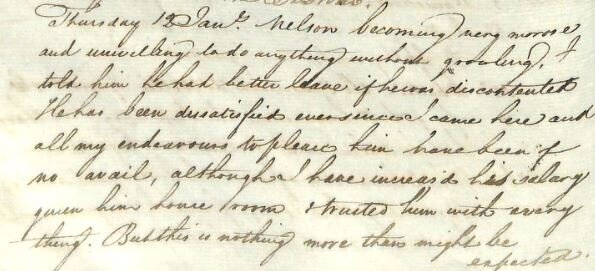 Thursday 12 Jany. Nelson becoming very morose
and unwilling to do anything without growling, I
told him he had better leave if he was discontented
He has been dissatisfied ever since I came here and
all my endeavours to please him have been of
no avail, although I have increas'd his salary
given him house room & trusted him with every
thing. But this is nothing more than might be
expected.